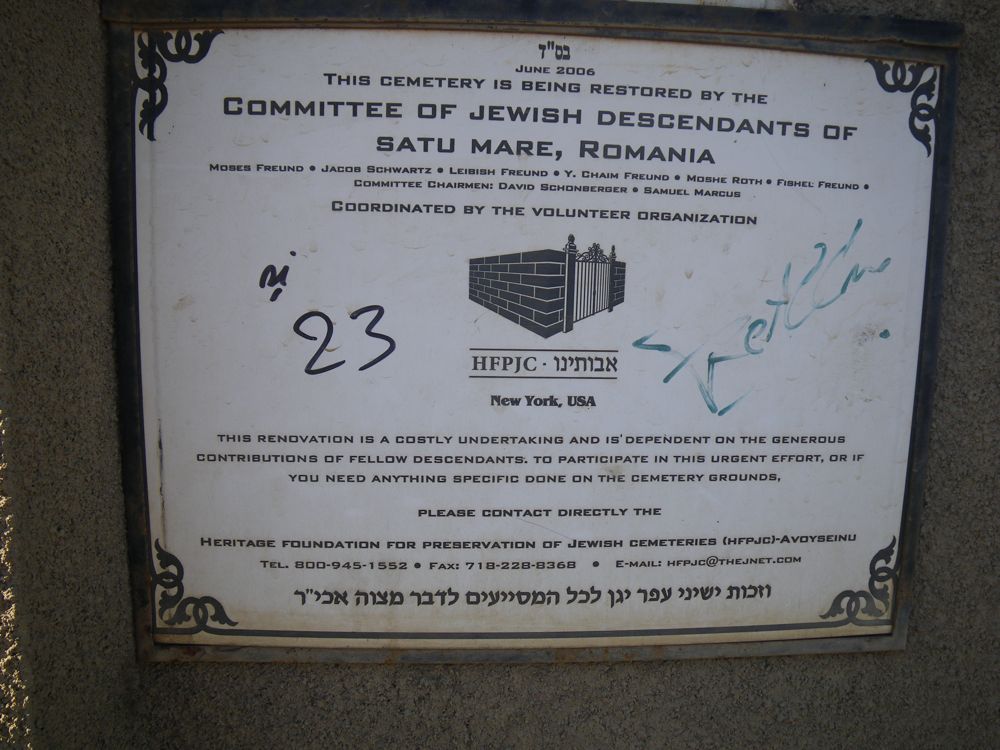 בס"ד
JUNE 2006
THIS CEMETERY IS BEING RESTORED BY THE
COMMITTEE OF JEWISH DESCENDANTS OF
SATU MARE, ROMANIA
MOSES FREUND • JACOB SCHWARTZ • LEIBISH FREUND • Y. CHAIM FREUND • MOSHE ROTH • FISHEL FREUND •
COMMITTEE CHAIRMEN: DAVID SCHONBERGER • SAMUEL MARCUS
COORDINATED BY THE VOLUNTEER ORGANIZATION
23
HFPJC · אבותינו
New York, USA
THIS RENOVATION IS A COSTLY UNDERTAKING AND IS DEPENDENT ON THE GENEROUS
CONTRIBUTIONS OF FELLOW DESCENDANTS. TO PARTICIPATE IN THIS URGENT EFFORT, OR IF
YOU NEED ANYTHING SPECIFIC DONE ON THE CEMETERY GROUNDS,
PLEASE CONTACT DIRECTLY THE
HERITAGE FOUNDATION FOR PRESERVATION OF JEWISH CEMETERIES (HFPJC)-AVOYSEINU
TEL. 800-945-1552 • FAX: 718-228-8368 • E-MAIL: HFPJC@THEJNET.COM
וזכות ישיני עפר יגן לכל המסייעים לדבר מצוה אכי"ר